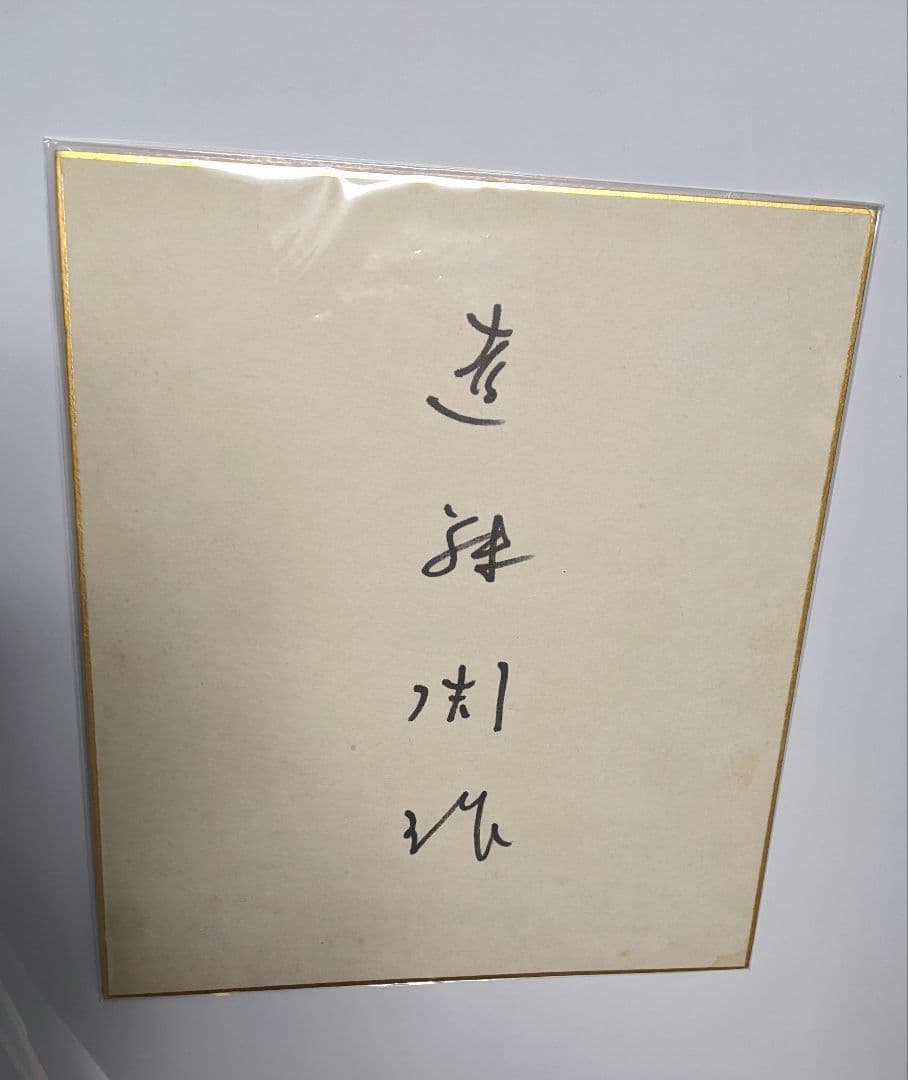 遠藤周作